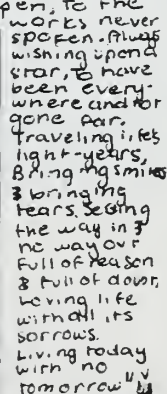 pen, to the
works never
spoken. Always
wishing upon a
star, to have
been every-
where and not
gone far.
Traveling lifes
light-years,
Bringing smiles
& bringing
tears. Seeing
the way in &
no way out
Full of reason
& full of doubt,
Loving life
with all its
sorrows.
Living today
with no
tomorrow